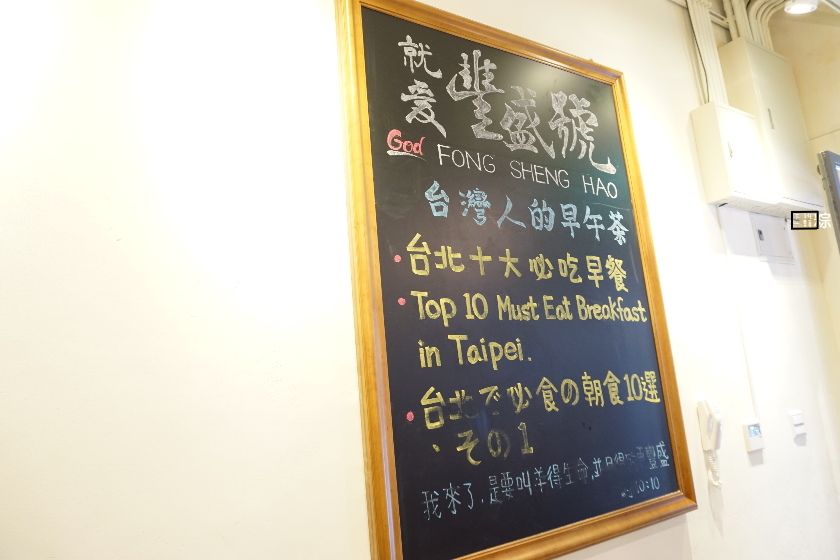 就愛
豐盛號
God
FONG SHENG HAO
台灣人的早午茶
台北十大必吃早餐
Top 10 Must Eat Breakfast
in Taipei.
台北で必食の朝食10選
、その1
我來了，是要叫羊得生命，並且得的更豐盛
10:10